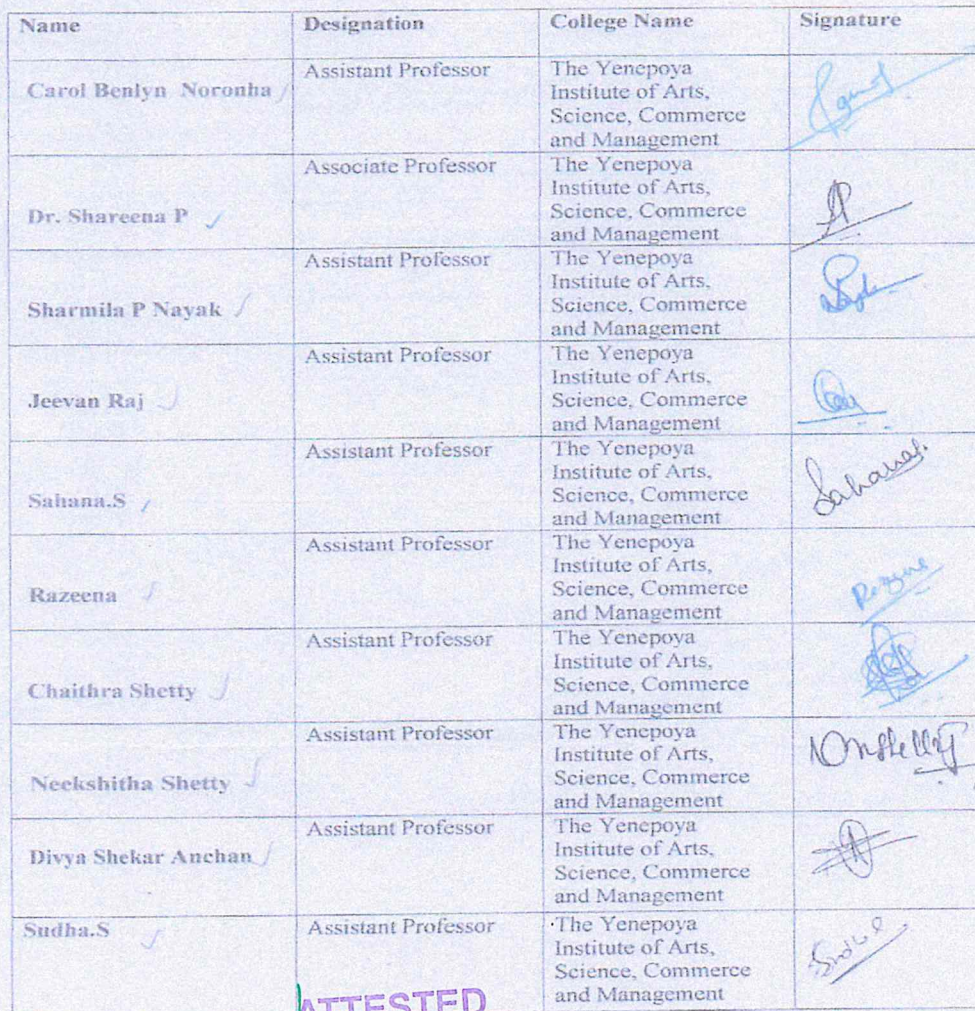 Name Designation College Name Signature
Carol Benlyn Noronha Assistant Professor The Yenepoya
Institute of Arts,
Science, Commerce
and Management
Dr. Shareena P Associate Professor The Yenepoya
Institute of Arts,
Science, Commerce
and Management
Sharmila P Nayak Assistant Professor The Yenepoya
Institute of Arts,
Science, Commerce
and Management
Jeevan Raj Assistant Professor The Yenepoya
Institute of Arts,
Science, Commerce
and Management
Sahana.S Assistant Professor The Yenepoya
Institute of Arts,
Science, Commerce
and Management
Razeena Assistant Professor The Yenepoya
Institute of Arts,
Science, Commerce
and Management
Chaithra Shetty Assistant Professor The Yenepoya
Institute of Arts,
Science, Commerce
and Management
Neekshitha Shetty Assistant Professor The Yenepoya
Institute of Arts,
Science, Commerce
and Management
Divya Shekar Anchan Assistant Professor The Yenepoya
Institute of Arts,
Science, Commerce
and Management
Sudha.S Assistant Professor The Yenepoya
Institute of Arts,
Science, Commerce
and Management
ATTESTED